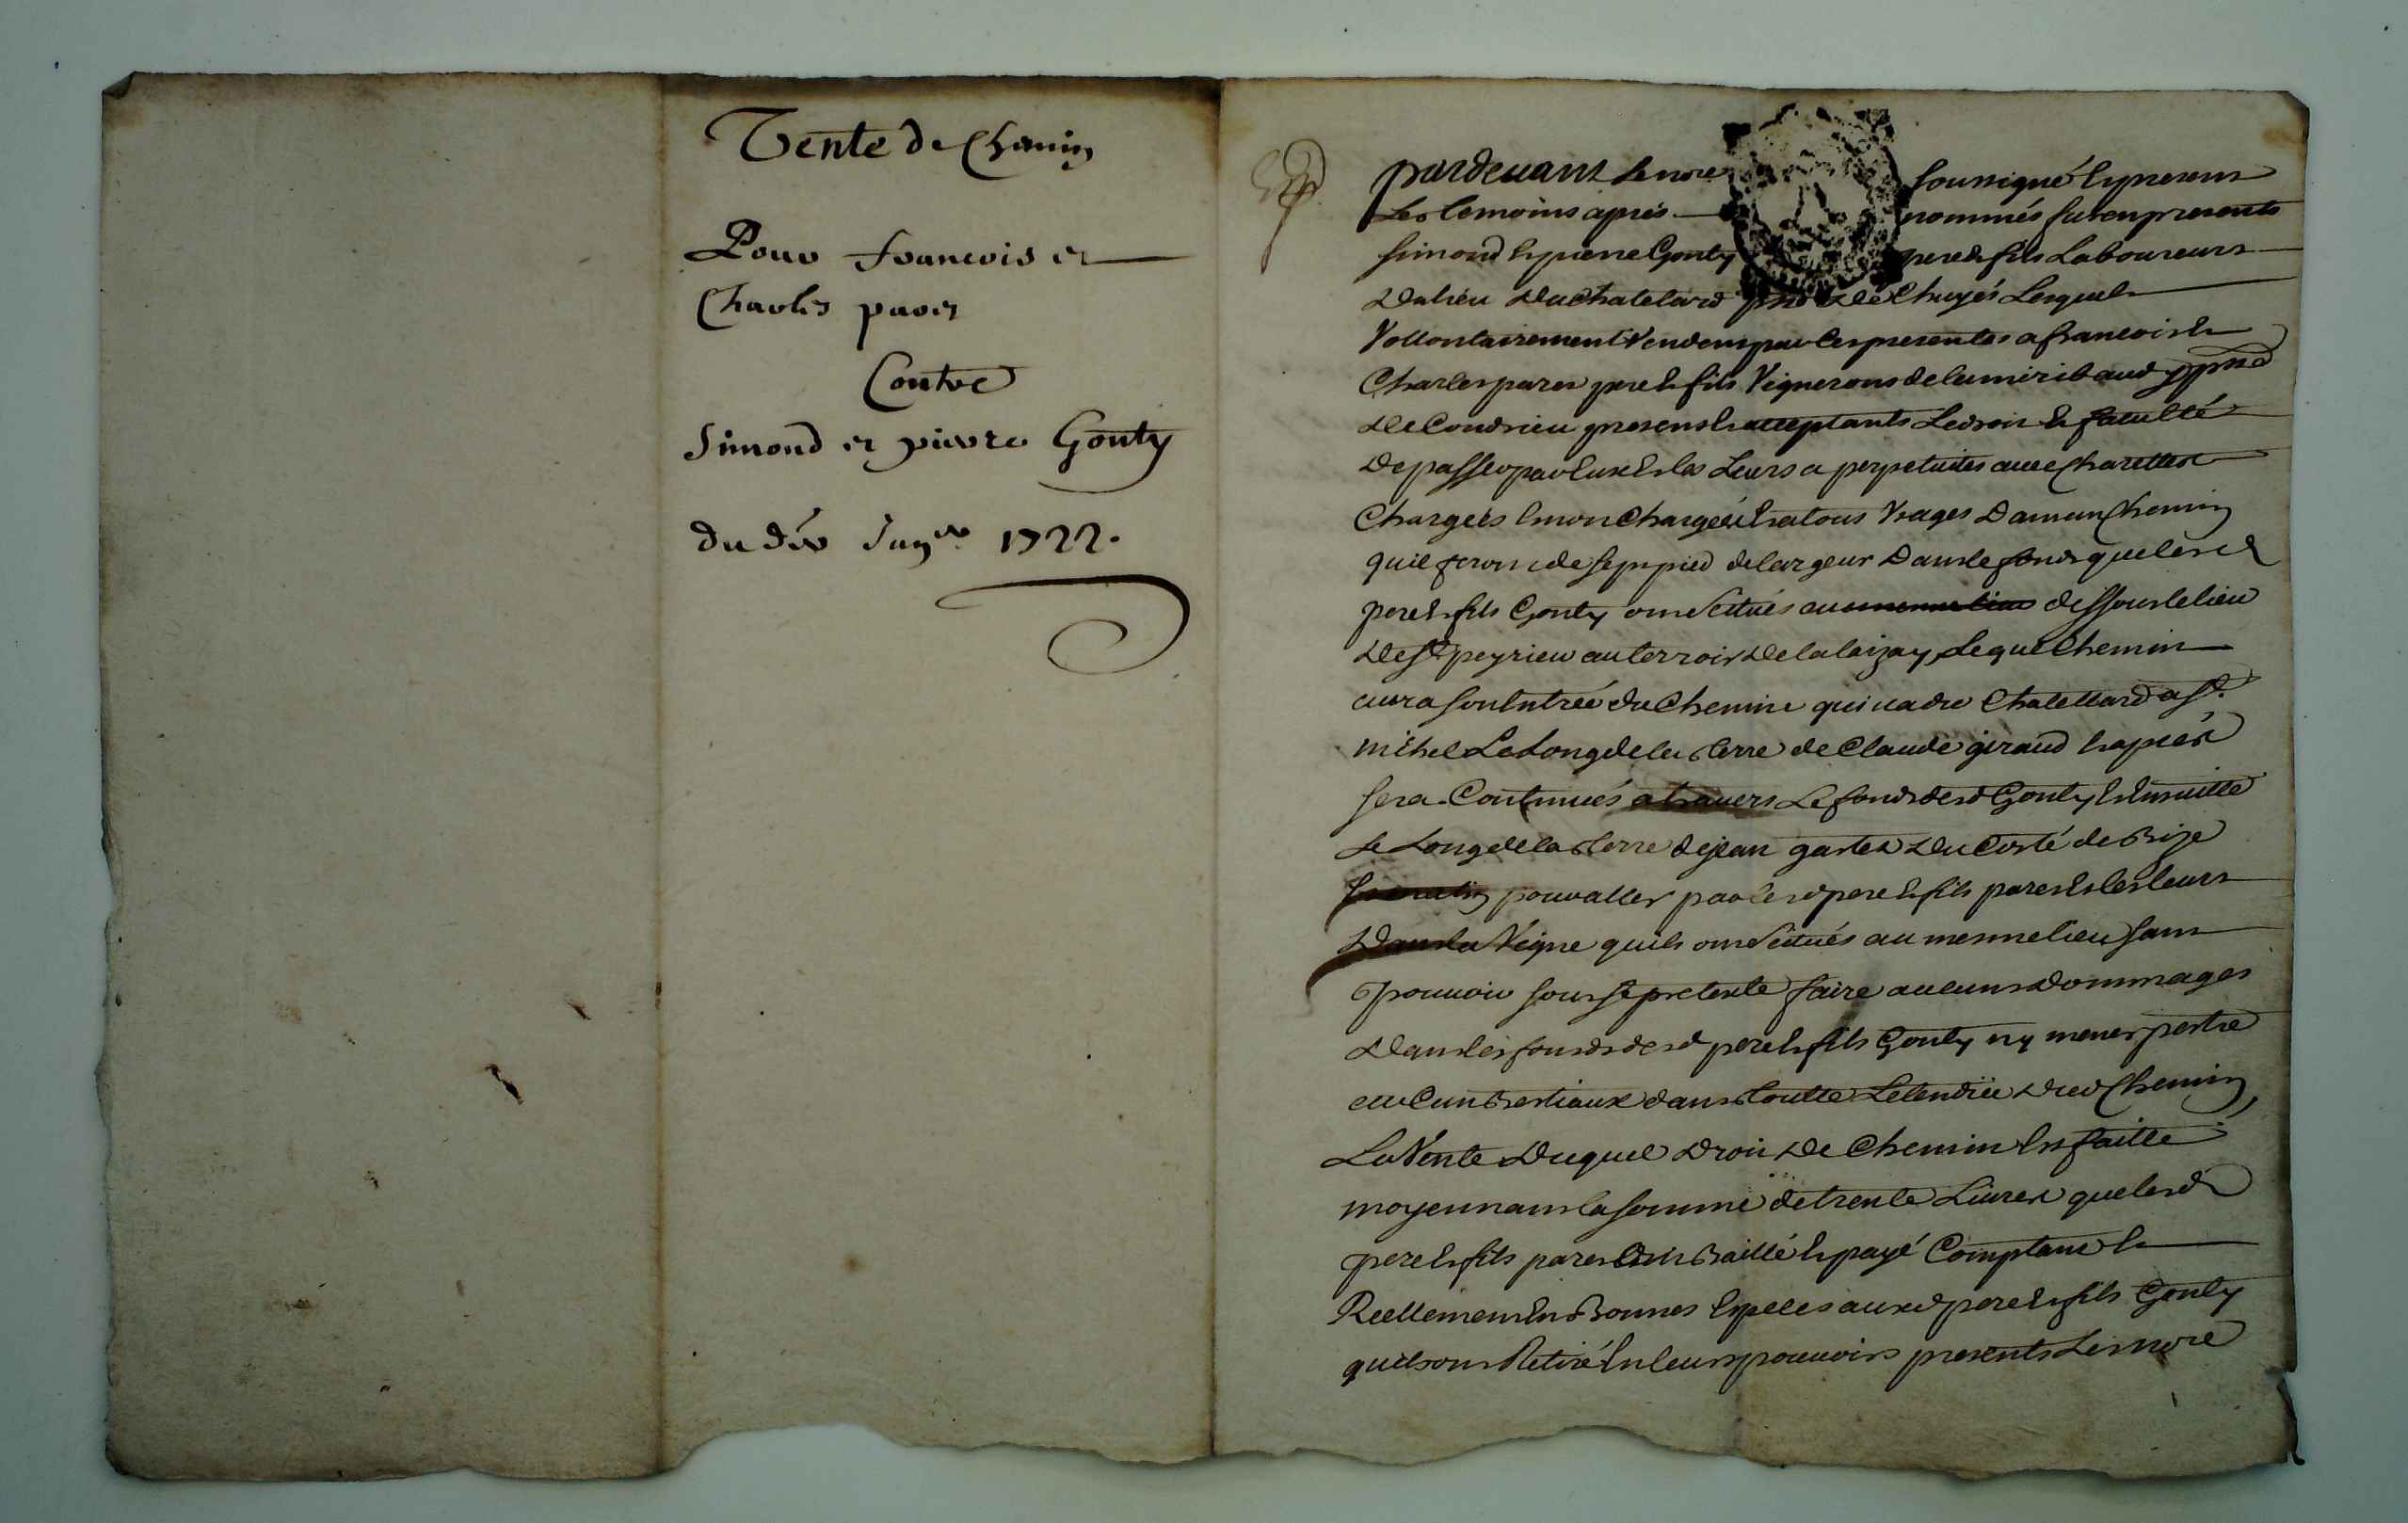 Vente de Chemin
Pour francois et
Charles paret
Contre
Simond et pierre Gonty
du 1722.
pardevant le no.re soussigné et presens
Les temoins apres nommés furent presents
Simond et pierre Gonty pere et fils Laboureurs
Du lieu Du Chatelard De Chuyés Lesquels
Vollontairement Vendent par les presentes a francois et
Charles paret pere et fils Vignerons de
De Condrieu presens et acceptants Le droit et faculté
De passer par Eux et les Leurs a perpetuites avec Charettes
Chargées et non Chargées et a tous Usages Dans un Chemin
quil feront de sept pied de largeur Dans le fonds que lesd
pere et fils Gonty ont scitués au dessous le lieu
De St peyrieu au terroir De Lequel Chemin
aura son Entrée du Chemin qui va du Chatellard a St.
michel Le Long de la terre de Claude giraud et apres
sera Continués a travers Le fonds desd Gonty et Ensuitte
Le Long de la terre de jean Du Costé de Bize
pour aller par lesd pere et fils paret et les leurs
Dans la Vigne quils ont scitués au mesme lieu sans
pouvoir sous se pretexte faire aucuns Dommages
Dans les fonds desd pere et fils Gonty ny mener
aucun Bestiaux dans toutte Letendüe Dud Chemin,
La Vente Duquel Droit De Chemin Est faitte
moyennant la somme de trente Livres que lesd
pere et fils paret ont Baillé et payé Comptant et
Reellement En Bonnes Especes auxd pere et fils Gonty
quils ont Retiré En leurs pouvoirs presents Les no.re